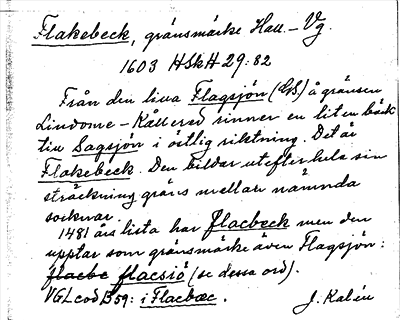 Flakebeck, gränsmärke Hall. – Vg.
1603 HSkH 29:82
Från den lilla Flagsjön (GS) å gränsen
Lindome – Kållered rinner en liten bäck
till Sagsjön i östlig riktning. Det är
Flakebeck. Den bildar utefter hela sin
sträckning gräns mellan nämnda
socknar.
1481 års lista har flacbeck men den
upptar som gränsmärke även Flagsjön:
flacbe flacsiö (se dessa ord).
VGL cod B 59: i Flacbæc.
J. Kalén